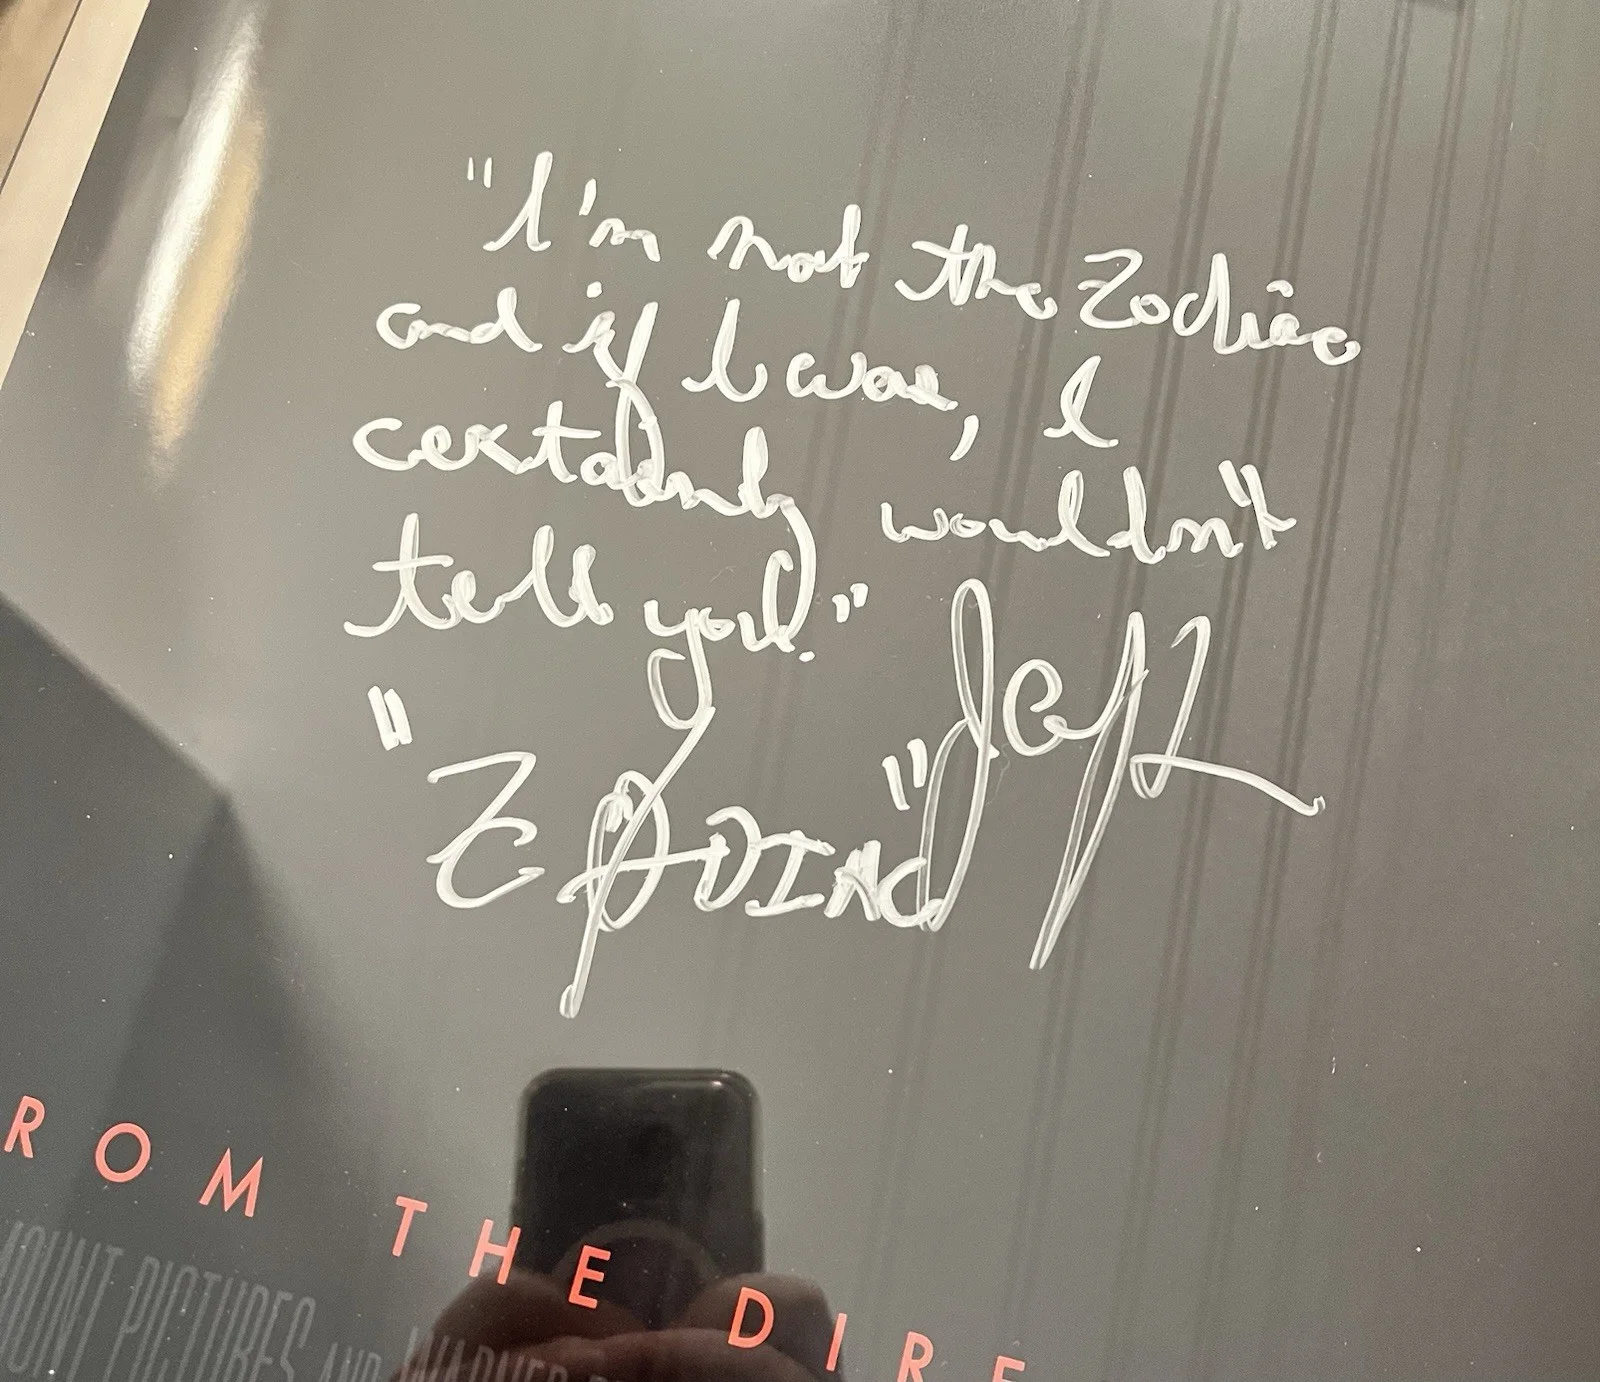 "I'm not the Zodiac
and if I was, I
certainly wouldn't
tell you."
"ZODIAC"
ROM THE DIRE
MOUNT PICTURES AND WARNER